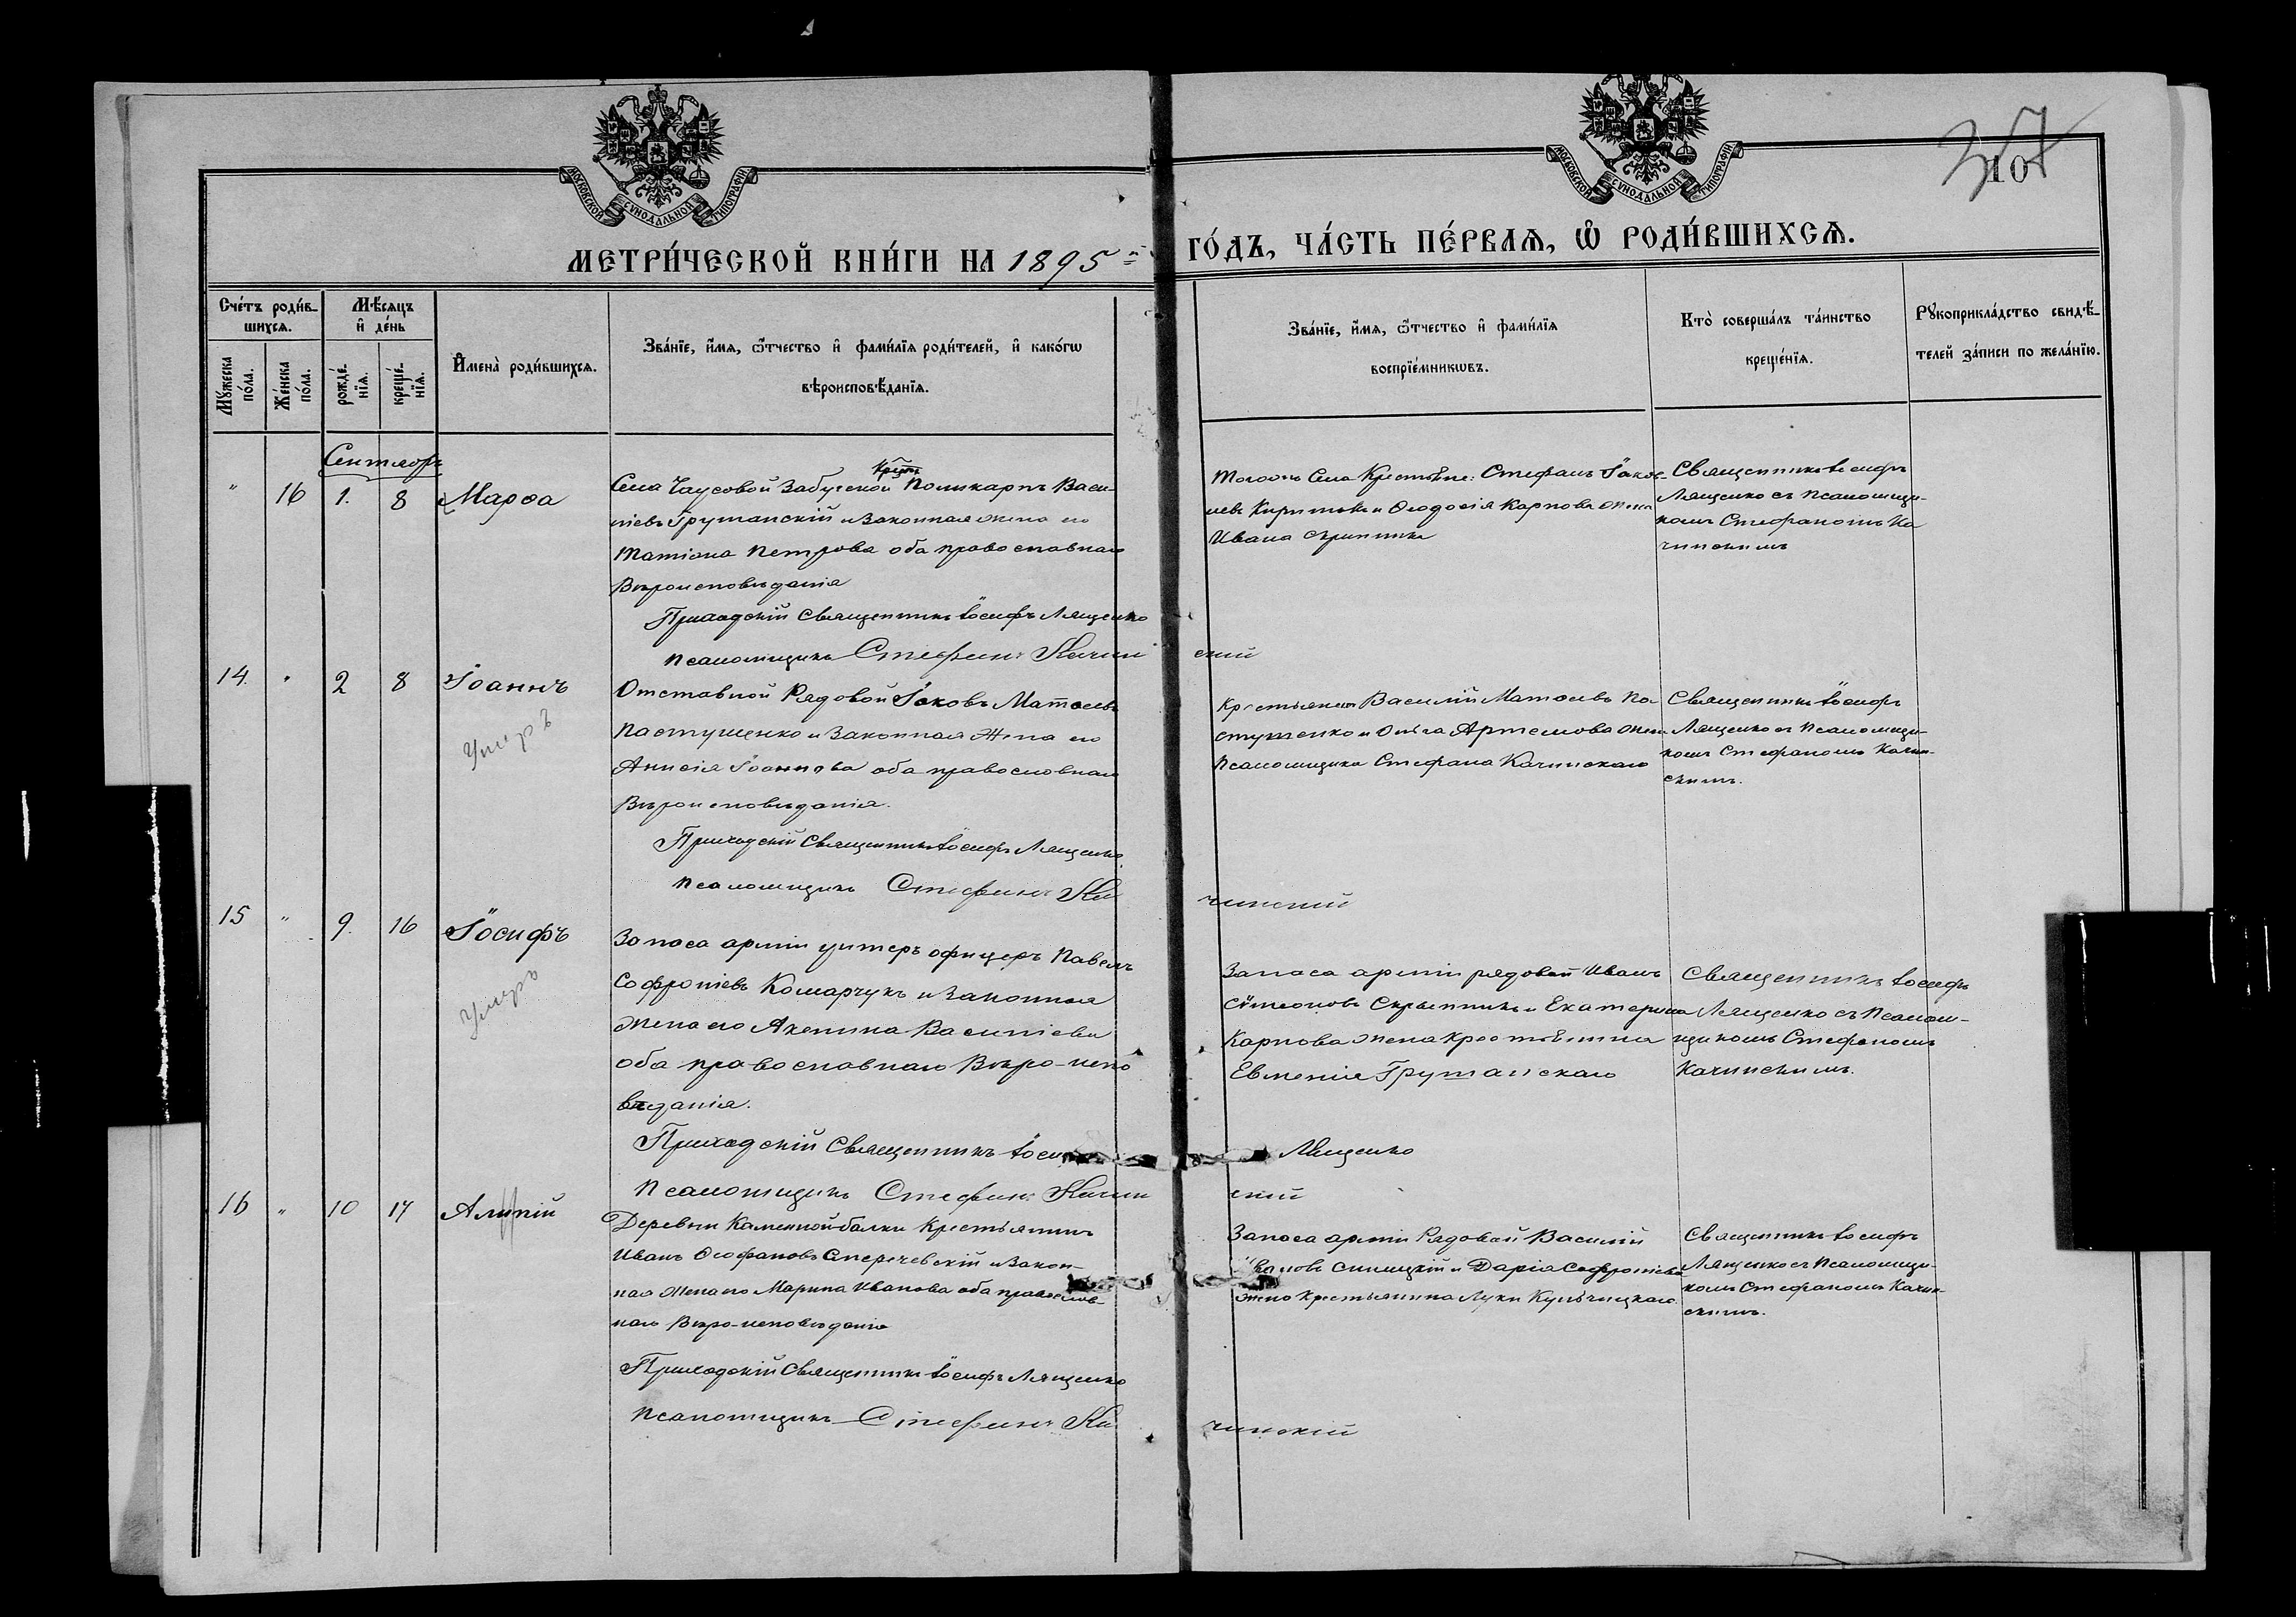 МОСКОВСКОЙ СУНОДАЛЬНОЙ ТИПОГРАФІИ
МОСКОВСКОЙ СУНОДАЛЬНОЙ ТИПОГРАФІИ
МЕТРИ́ЧЕСКОЙ КНИ́ГИ НА 1895 ГО́ДЪ, ЧА́СТЬ ПЕ́РВАѦ, Ѡ РОДИ́ВШИХСѦ.
Сче́тъ роди́в-
шихсѧ.
Мꙋ́жеска по́ла.
Же́нска по́ла.
Мѣ́сѧцъ и҆ де́нь
рожде́нїѧ.
креще́нїѧ.
И҆мена̀ роди́вшихсѧ.
Зва́нїе, и҆́мѧ, ѻ҆́тчество и҆ фами́лїѧ роди́телей, и҆ како́гѡ
вѣроисповѣ́данїѧ.
Зва́нїе, и҆́мѧ, ѻ҆́тчество и҆ фами́лїѧ
воспрїе́мникѡвъ.
Кто̀ соверша́лъ та́инство
креще́нїѧ.
Рꙋкоприкла́дство свидѣ́-
телей за́писи по жела́нїю.
Сентябрь
" 16 1. 8 Марѳа
Села Чаусовой Забугской Поликарпъ Васи-
ліевъ Грушанскій и Законная жена его
Татіана Петрова оба православнаго
Вѣроисповѣданія
Приходскій Священникъ Іосифъ Лященко
Псаломщикъ Стефанъ Качинскій
Тогожъ Села Крестьяне: Стефанъ Іаков-
левъ и Ѳеодосія Карпова жена
Ивана Скрипника
Священникъ Іосифъ
Лященко съ Псаломщи-
комъ Стефаномъ Ка
чинскимъ
14. " 2 8 Іоаннъ
умеръ
Отставной Рядовой Іаковъ Матѳеевъ
Пастушенко и Законная Жена его
Анисія Іоаннова оба православнаго
Вѣроисповѣданія.
Приходскій Священникъ Іосифъ Лященко
Псаломщикъ Стефанъ Качинскій
Крестьянинъ Василій Матѳеевъ Па
стушенко и Ольга Артемова жена
Псаломщика Стефана Качинскаго
Священникъ Іосифъ
Лященко съ Псаломщи-
комъ Стефаномъ Качин-
скимъ.
15 " 9. 16 Іосифъ
умеръ
Запаса арміи унтеръ офицеръ Павелъ
Софроніевъ Комарчукъ и Законная
Жена его Акепина Василіева
оба православнаго Вѣро-испо
вѣданія.
Приходскій Священникъ Іосифъ Лященко
Псаломщикъ Стефанъ Качинскій
Запаса арміи рядовой Иванъ
Сѵмеоновъ Скрыпникъ и Екатерина
Карпова жена крестьянина
Евменія Грушанскаго
Священникъ Іосифъ
Лященко съ Псалом-
щикомъ Стефаномъ
Качинскимъ.
16 " 10 17 Алипій
Деревни Каменной-балки Крестьянинъ
Иванъ Ѳеофановъ и Закон-
ная Жена его Марина Иванова оба православ-
наго Вѣро-исповѣданія
Приходскій Священникъ Іосифъ Лященко
Псаломщикъ Стефанъ Качинскій
Запаса арміи Рядовой Василій
Ивановъ Синицкій и Дарія Софроніева
жена Крестьянина Луки Кульчицкаго
Священникъ Іосифъ
Лященко съ Псаломщи-
комъ Стефаномъ Качин-
скимъ.